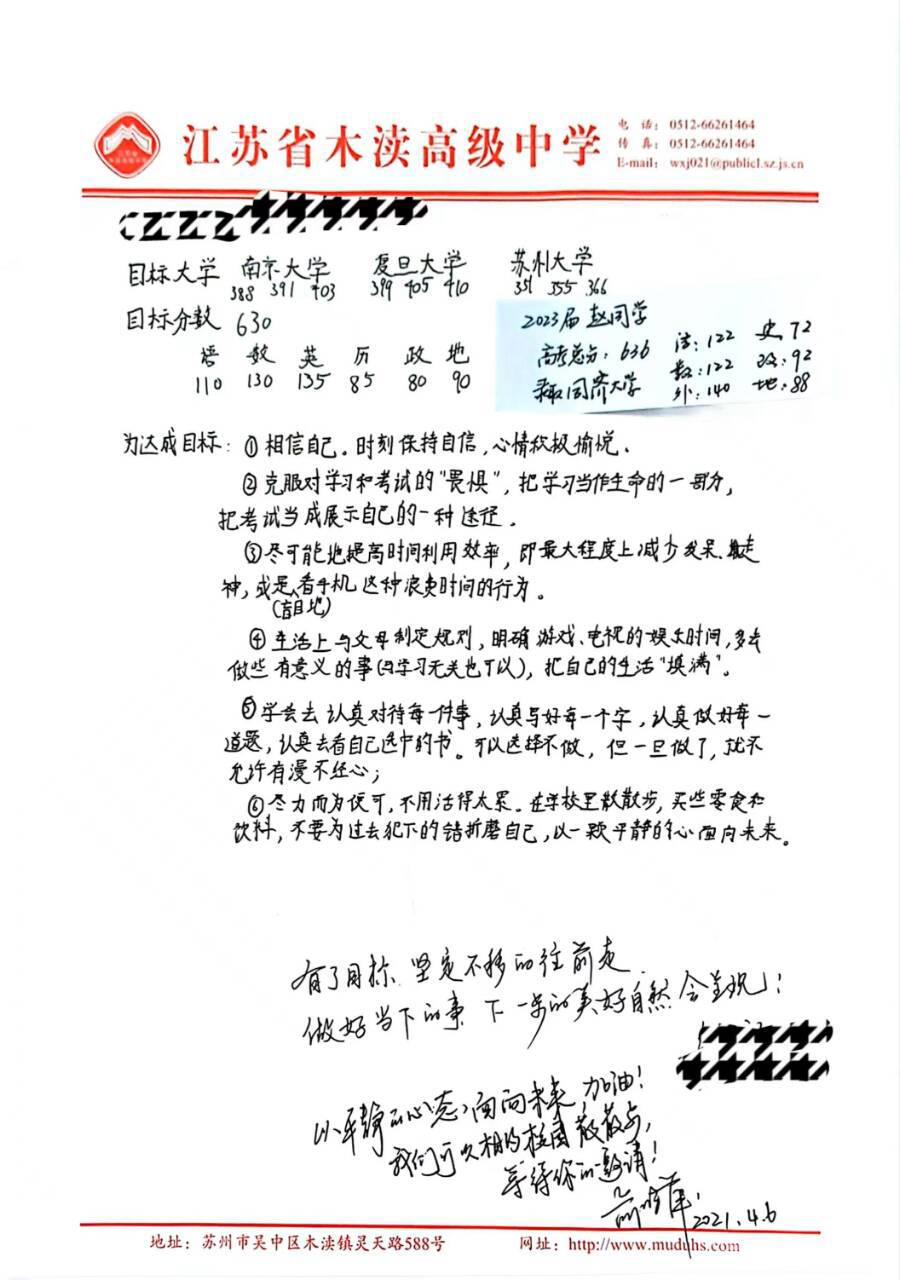 江苏省木渎高级中学
电 话: 0512-66261464
传 真: 0512-66261464
E-mail: wxj021@public1.sz.js.cn
目标大学 南京大学 复旦大学 苏州大学
388 391 403 399 405 410 351 355 366
目标分数 630
语 数 英 历 政 地
110 130 135 85 80 90
2023届 赵同学
高考总分: 636
录取同济大学
语: 122 史 72
数: 122 政: 92
外: 140 地: 88
为达成目标: ①相信自己。时刻保持自信,心情积极愉悦。
②克服对学习和考试的"畏惧",把学习当作生命的一部分,
把考试当成展示自己的一种途径。
③尽可能地提高时间利用效率,即最大程度上减少发呆、走
神,或是看手机这种浪费时间的行为。
(盲目地)
④生活上与父母制定规则,明确游戏、电视的娱乐时间,多去
做些有意义的事(与学习无关也可以),把自己的生活"填满"。
⑤学会去认真对待每一件事,认真写好每一个字,认真做好每一
道题,认真去看自己选中的书。可以选择不做,但一旦做了,就不
允许有漫不经心;
⑥尽力而为便可,不用活得太累。在学校里散散步,买些零食和
饮料,不要为过去犯下的错折磨自己,以一颗平静的心面向未来。
有了目标 坚定不移的往前走
做好当下的事 下一步的美好自然会呈现!
以平静的心态面向未来,加油!
我们可以相约校园散散步,
等待你的邀请!
2021.4.6
地址: 苏州市吴中区木渎镇灵天路588号 网址: http://www.muduhs.com